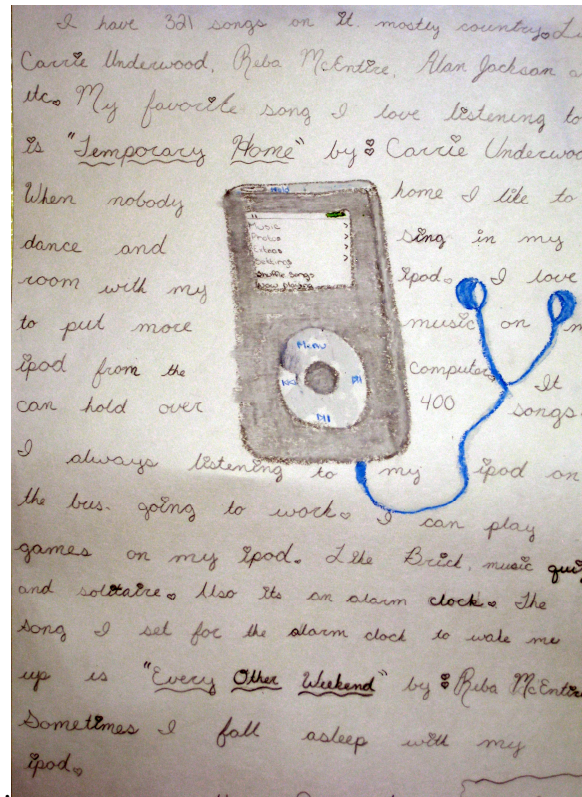 I have 321 songs on it. mostley country. Li
Carrie Underwood, Reba McEntire, Alan Jackson a
etc. My favorite song I love listening to
is "Temporary Home" by: Carrie Underwoo
When nobody home I like to
dance and sing in my
room with my ipod. I love
to put more music on m
ipod from the computor. It
can hold over 400 songs.
I always listening to my ipod on
the bus. going to work. I can play
games on my ipod. Like Brick, music qui
and solitaire. Also its an alarm clock. The
song I set for the alarm clock to wake me
up is "Every Other Weekend" by: Reba McEntire
Sometimes I fall asleep with my
ipod.
Hold
Music >
Photos >
Extras >
Settings >
Shuffle Songs
Now Playing
Menu